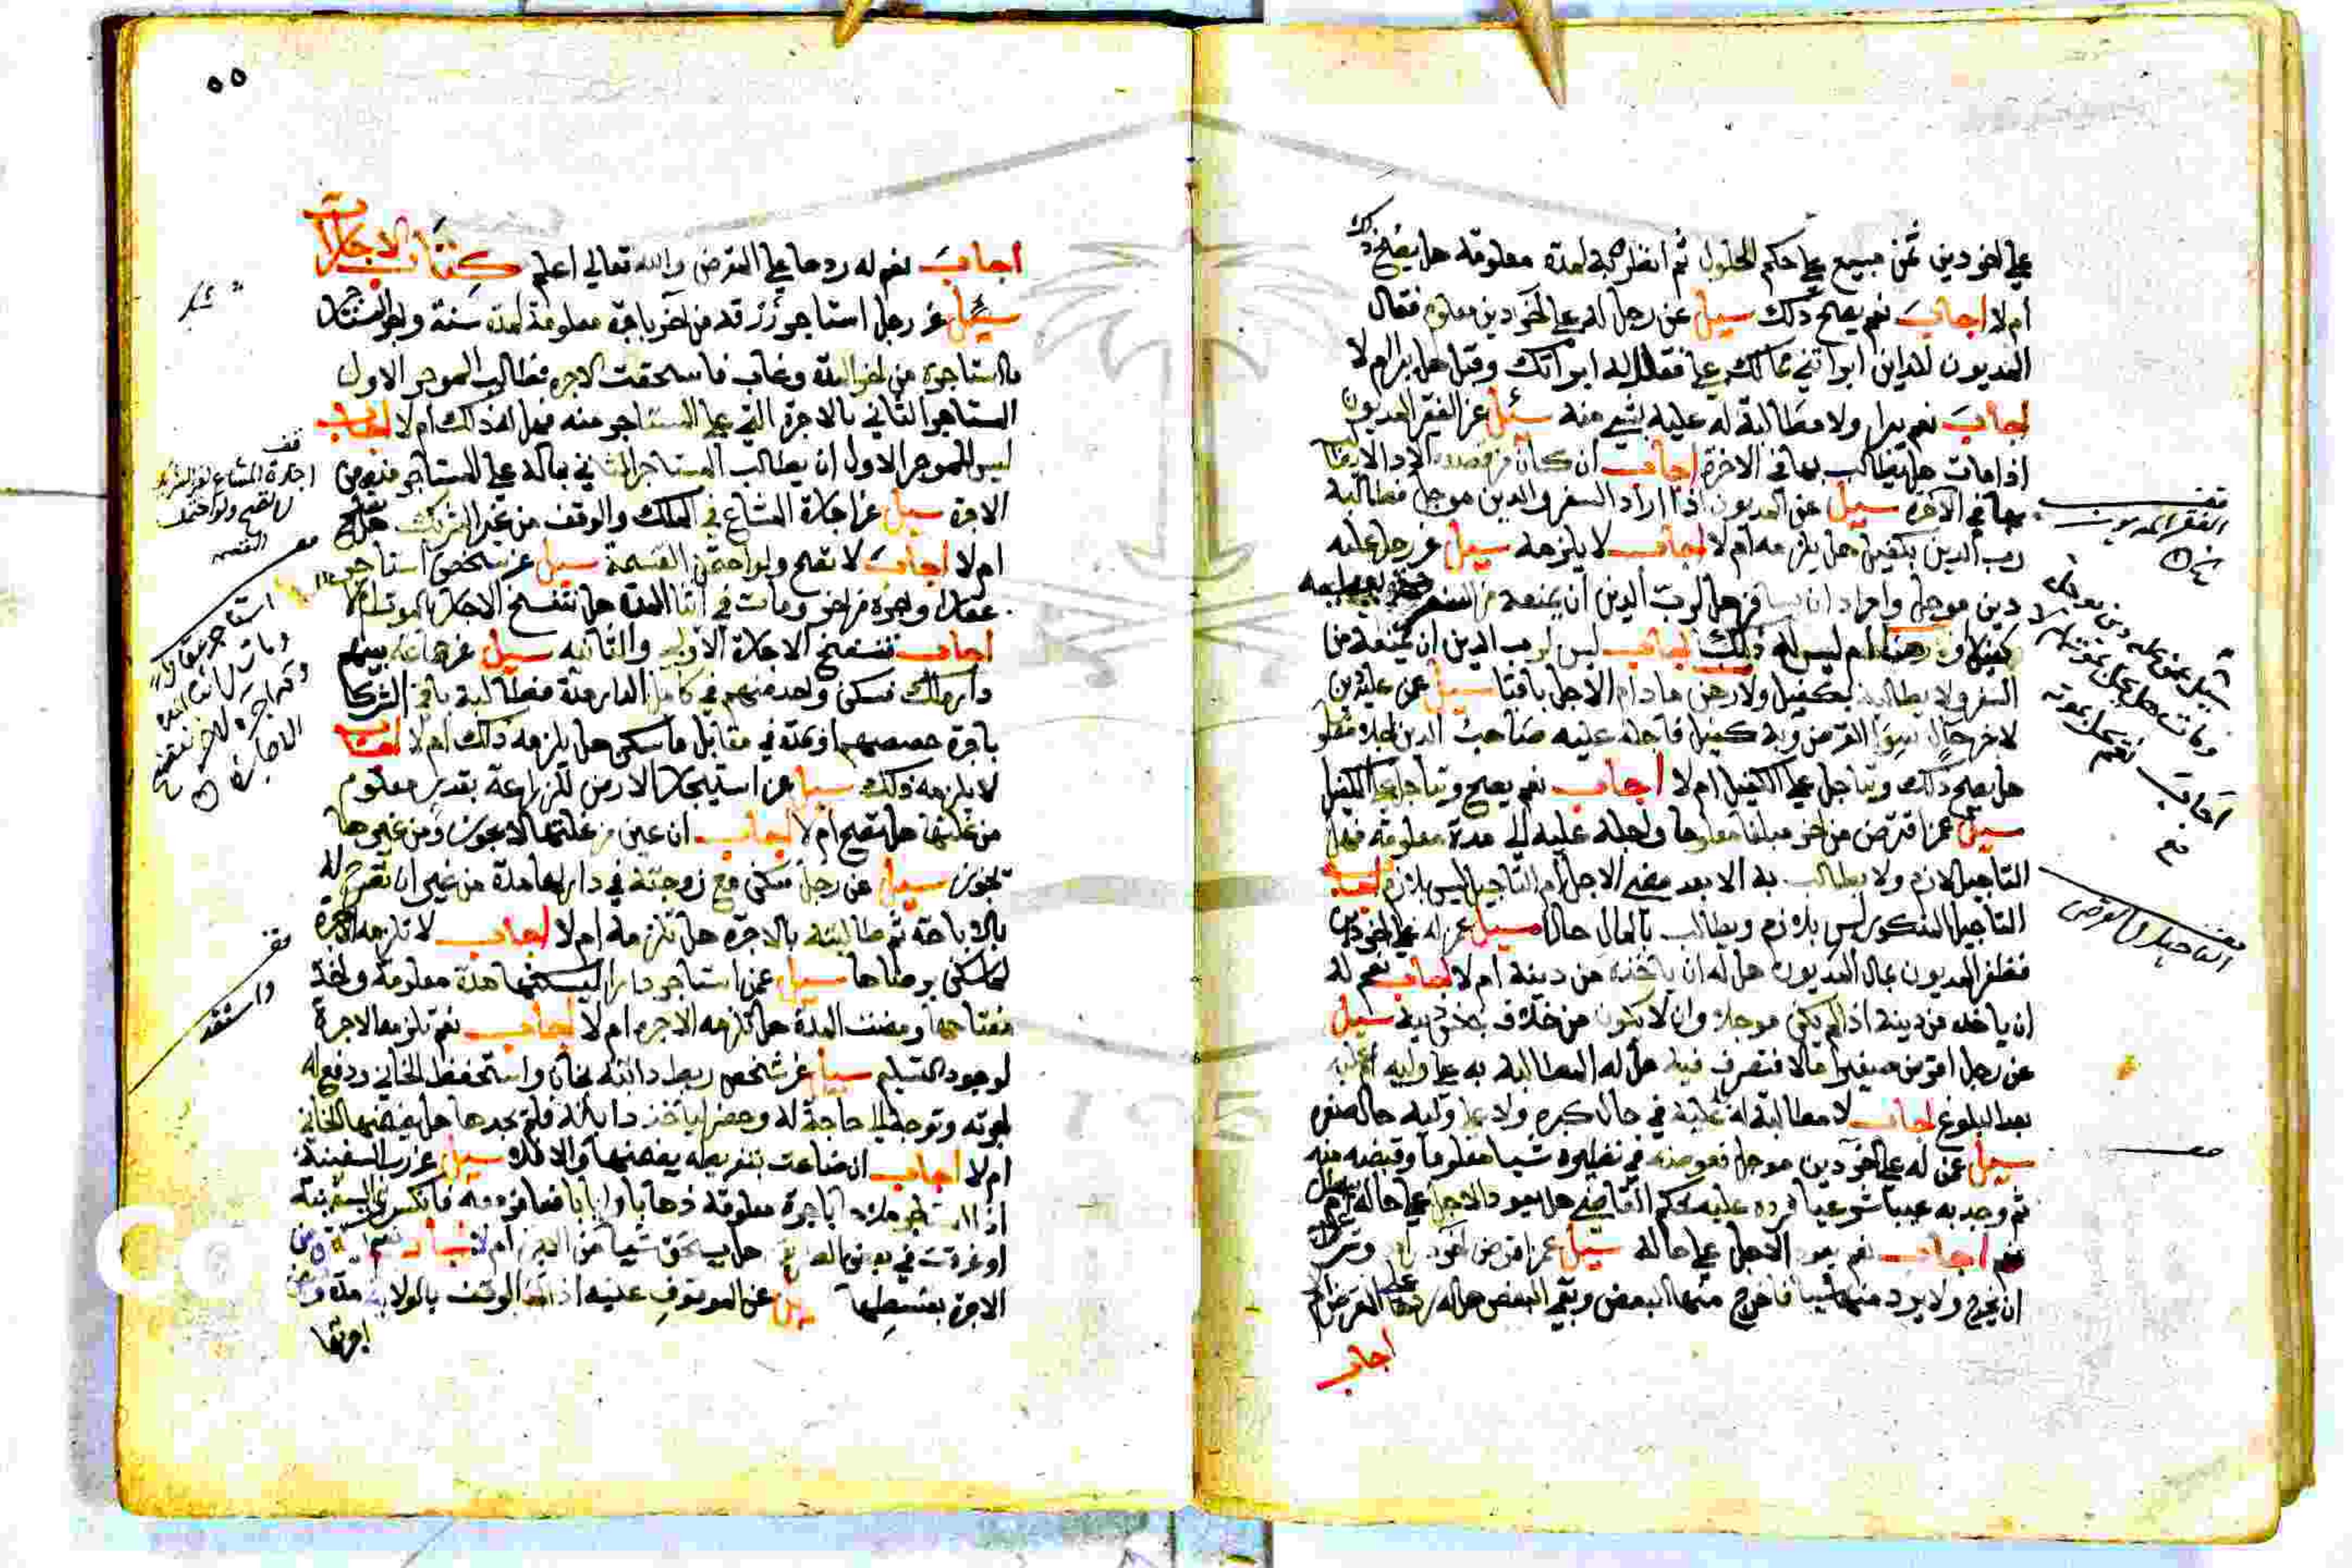 علي اخر دين ثمن مبيع علي حكم الحلول ثم انظره به لمدة معلومة هل يصح ذلك
ام لا اجاب نعم يصح ذلك سيل عن رجل له علي اخر دين معلوم فقال
المديون للداين ابراتني مما لك علي فقال له ابراتك وقبل هل يبرا ام لا
اجاب نعم يبرا ولا مطالبة له عليه بشي منه سئل عن الفقير المديون
اذا مات هل يطالب بها في الاخرة اجاب ان كان من قصده الاداء لا يطالب
بها في الاخرة سيل عن المديون اذا اراد السفر والدين موجل فطالبه
رب الدين بكفيل هل يلزمه ام لا اجاب لا يلزمه سيل عن رجل عليه
دين موجل واراد ان يسافر هل لرب الدين ان يمنعه من السفر حتى يعطيه
كفيلا او رهنا ام ليس له ذلك اجاب ليس لرب الدين ان يمنعه من
السفر ولا يطالبه بكفيل ولا رهن ما دام الاجل باقيا سيل عن عليه دين
لاخر حال سوا القرض وبه كفيل فاجله عليه صاحب الدين اجلا معلوما
هل يصح ذلك ويتاجل علي الكفيل ام لا اجاب نعم يصح ويتاجل علي الكفيل
سيل عمن اقترض من اخر مبلغا معلوما واجله عليه الي مدة معلومة فهل
التاجيل لازم ولا يطالب به الا بعد مضي الاجل ام التاجيل ليس بلازم اجاب
التاجيل المذكور ليس بلازم ويطالب بالمال حالا سيل عمن له علي اخر دين
فظفر المديون بمال المديون هل له ان ياخذه من دينه ام لا اجاب نعم له
ان ياخذه من دينه اذا لم يكن موجلا وان لا يكون من خلاف جنس دينه سيل
عن رجل اقرض صغيرا مالا فتصرف فيه هل له المطالبة به علي وليه او عليه
بعد البلوغ اجاب لا مطالبة له عليه في حال كبره ولا علي وليه حال صغره
سيل عمن له علي اخر دين موجل فعوضه في نظيره شيا معلوما وقبضه منه
ثم وجد به عيبا شرعيا فرده عليه بحكم القاضي هل يعود الاجل علي حاله ام لا
اجاب نعم يعود الاجل علي حاله سيل عمن اقترض من اخر
ان يخرج ولا يرد منها شيا فاخرج منها البعض وبقي البعض هل له ردها علي المقرض ام لا
اجاب
قف
الفقير المديون
سيل عمن عليه دين موجل
ومات هل يحل بموته ام لا
اجاب نعم يحل بموته
التاجيل في القرض
٥٥
اجاب نعم له ردها علي المقرض والله تعالي اعلم كتاب الاجارات
سيل عن رجل استاجر رزقه من اخر باجرة معلومة لمدة سنة واجر المستاجر
ما استاجره من اخر المدة وغاب فاستحقت الاجره فطالب الموجر الاول
المستاجر الثاني بالاجرة التي علي المستاجر منه فهل له ذلك ام لا اجاب
ليس للموجر الاول ان يطالب المستاجر الثاني بماله علي المستاجر منه من
الاجرة سيل عن اجارة المشاع في الملك والوقف من غير الشريك هل تصح
ام لا اجاب لا تصح ولو احتمل القسمة سيل عن شخص استاجر
عقارا واجره من اخر ومات في اثنا المدة هل تنفسخ الاجارة بالموت ام لا
اجاب تنفسخ الاجارة الاولي والثانيه سيل عن جماعة بينهم
دار ملك فسكن واحد منهم في كامل الدار مدة فطالبه باقي الشركا
باجرة حصصهم او بمدة في مقابل ما سكن هل يلزمه ذلك ام لا اجاب
لا يلزمه ذلك سيل عن استيجار الارض للزراعة بقدر معلوم
من غلتها هل تصح ام لا اجاب ان عين من غلتها لا يجوز ومن غيرها
تجوز سيل عن رجل سكن مع زوجته في دارها مدة من غير ان تصرح له
بالاباحة ثم طالبته بالاجرة هل تلزمه ام لا اجاب لا تلزمه الاجرة
لسكنى برضاها سيل عمن استاجر دارا ليسكنها مدة معلومة واخذ
مفتاحها ومضت المدة هل تلزمه الاجره ام لا اجاب نعم تلزمه الاجرة
لوجود التسليم سيل عن شخص ربط دابته بخان واستحفظ الخاني ودفع له
اجرته وتوجه الي حاجة له وحضر لياخذ دابته فلم يجدها هل يضمنها الخاني
ام لا اجاب ان ضاعت بتفريطه يضمنها والا فلا سيل عن رب السفينة
اذا استجر ملاحا باجرة معلومة ذهابا وايابا فانكسرت السفينة
او غرقت في بعض الطريق هل يستحق شيا من الاجرة ام لا اجاب نعم يستحق من
الاجرة بقسطها سيل عن الموقوف عليه اذا اجر الوقف بالولاية مدة وقبض
اجرتها
قف
اجارة المشاع لغير الشريك
لا تصح ولو احتمل
القسمة
استاجر عقارا
ومات في اثنا المدة
وقد اجره لاخر تنفسخ
الاجارة